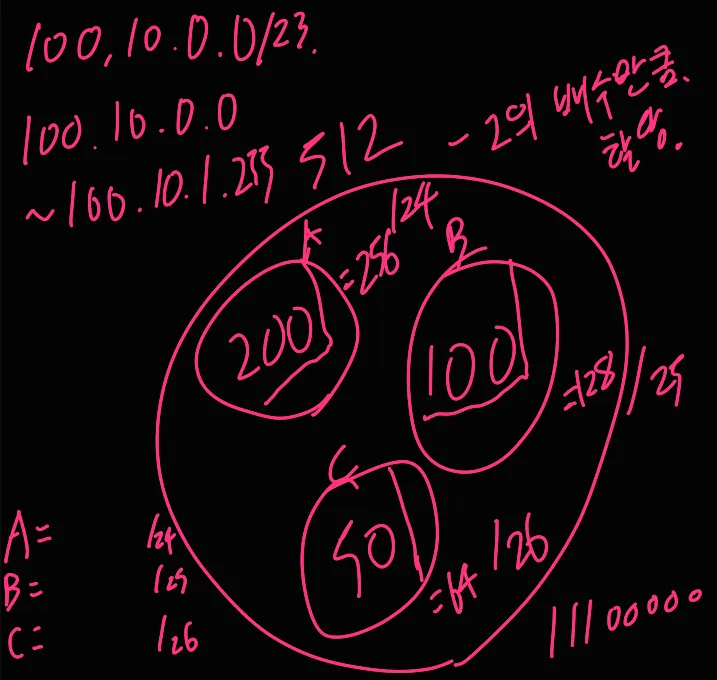 100.10.0.0/23.
100.10.0.0
~100.10.1.255 512
- 2의 배수만큼
할당.
A
200
=256 /24
B
100
=128 /25
C
50
=64 /26
A= /24
B= /25
C= /26
11100000